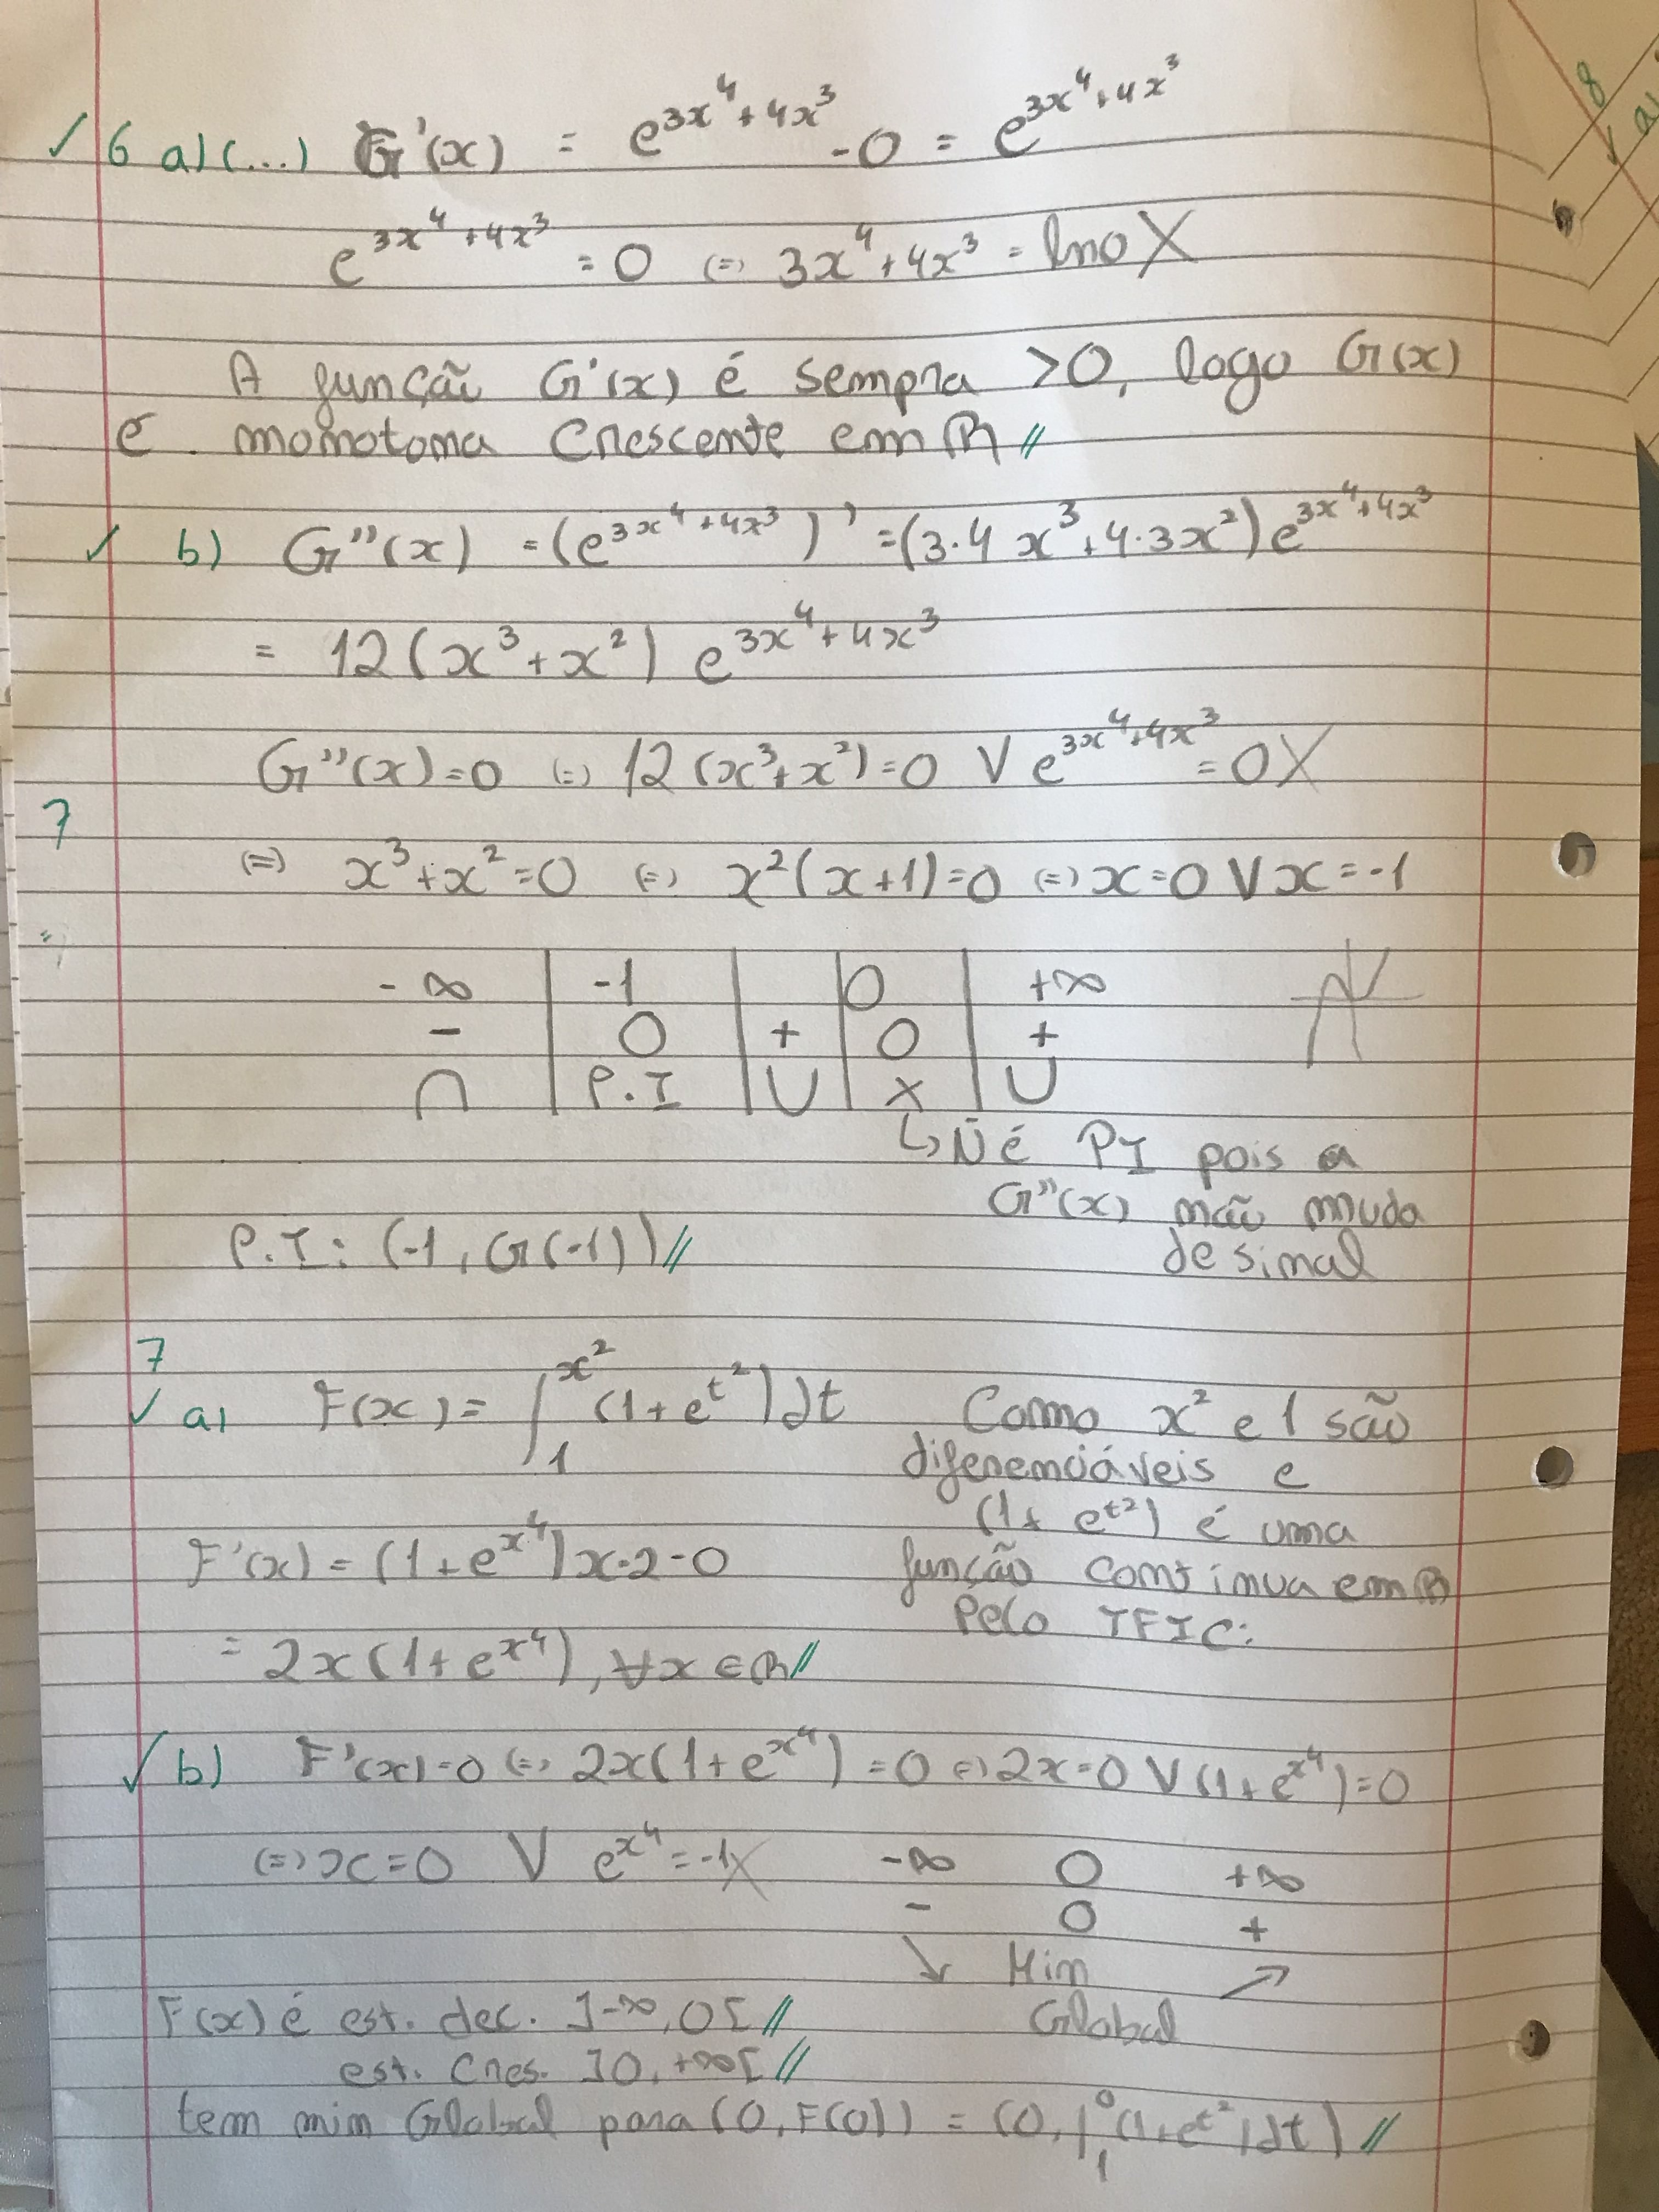 ✓ 6 a) (...) G'(x) = e^{3x^4+4x^3} - 0 = e^{3x^4+4x^3}
e^{3x^4+4x^3} = 0 (=) 3x^4+4x^3 = ln0 X
A função G'(x) é sempra >0, logo G(x)
é monotona Crescente em ℝ //
✓ b) G''(x) = (e^{3x^4+4x^3})' = (3·4x^3+4·3x^2) e^{3x^4+4x^3}
= 12(x^3+x^2) e^{3x^4+4x^3}
G''(x)=0 (=) 12(x^3+x^2)=0 V e^{3x^4+4x^3}=0 X
7
(=) x^3+x^2=0 (=) x^2(x+1)=0 (=) x=0 V x=-1
-∞ | -1 | | 0 | +∞
- | 0 | + | 0 | +
∩ | P.I | U | X | U
↳ Ñ é PI pois a
G''(x) não muda
de sinal
P.I: (-1, G(-1)) //
7
✓ a) F(x) = ∫_1^{x^2} (1+e^{t^2})dt Como x^2 e 1 são
diferenciáveis e
(1+ e^{t^2}) é uma
função continua em ℝ
Pelo TFIC:
F'(x) = (1+e^{x^4})x·2-0
= 2x(1+e^{x^4}), ∀x∈ℝ //
✓ b) F'(x)=0 (=) 2x(1+e^{x^4})=0 (=) 2x=0 V (1+e^{x^4})=0
(=) x=0 V e^{x^4}=-1 X
-∞ 0 +∞
- 0 +
↘ Min ↗
Global
F(x) é est. dec. ]-∞,0[ //
est. Cres. ]0,+∞[ //
tem min Global para (0, F(0)) = (0, ∫_1^0 (1+e^{t^2})dt) //
8
✓ a)